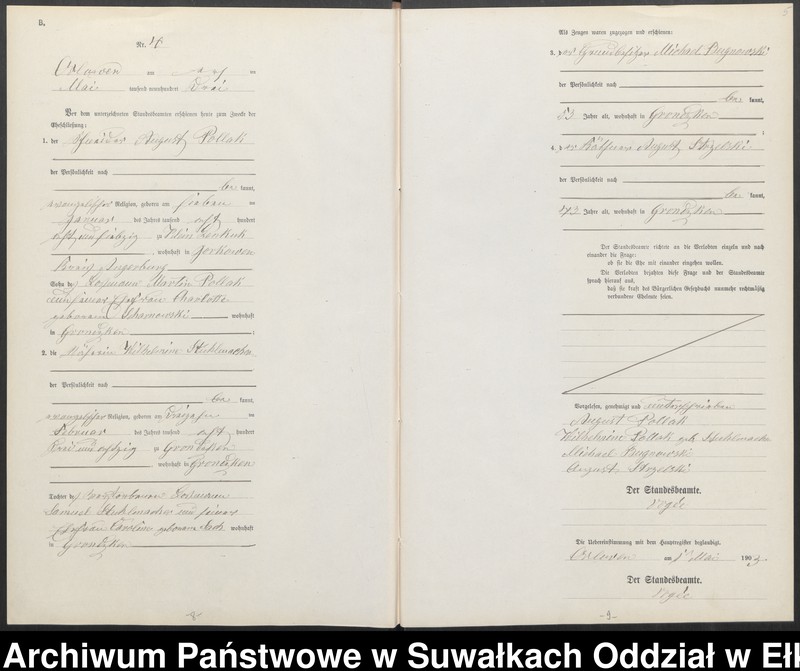 B.
Nr. 4
Orlowen am
Mai tausend neunhundert Drei
Vor dem unterzeichneten Standesbeamten erschienen heute zum Zwecke der
Eheschließung:
1. der Schneider August Pollak
der Persönlichkeit nach
be kannt,
evangelischer Religion, geboren am sieben ten
Januar des Jahres tausend acht hundert
acht und siebzig zu Klein
, wohnhaft in
Kreis Angerburg
Sohn des Losmann Martin Pollak
und seiner Ehefrau Charlotte
geborenen wohnhaft
in Grondzken ;
2. die Wilhelmine Stuhlmacher
der Persönlichkeit nach
be kannt,
evangelischer Religion, geboren am ten
Februar des Jahres tausend acht hundert
Drei und achtzig zu Grondzken
, wohnhaft in Grondzken
Tochter des verstorbenen Losmann
Samuel Stuhlmacher und seiner
Ehefrau Caroline geborenen wohnhaft
in Grondzken
-8-
5
Als Zeugen waren zugezogen und erschienen:
3. der Grundbesitzer Michael
der Persönlichkeit nach
be kannt,
53 Jahre alt, wohnhaft in Grondzken
;
4. der Käthner August
der Persönlichkeit nach
be kannt,
Jahre alt, wohnhaft in Grondzken
Der Standesbeamte richtete an die Verlobten einzeln und nach
einander die Frage:
ob sie die Ehe mit einander eingehen wollen.
Die Verlobten bejahten diese Frage und der Standesbeamte
sprach hierauf aus,
daß sie kraft des Bürgerlichen Gesetzbuchs nunmehr rechtmäßig
verbundene Eheleute seien.
Vorgelesen, genehmigt und unterschrieben
August Pollak
Wilhelmine Pollak geb. Stuhlmacher
Michael
August
Der Standesbeamte.
Die Uebereinstimmung mit dem Hauptregister beglaubigt.
Orlowen am Mai 1903
Der Standesbeamte.
-9-
Archiwum Państwowe w Suwałkach Oddział w Eł